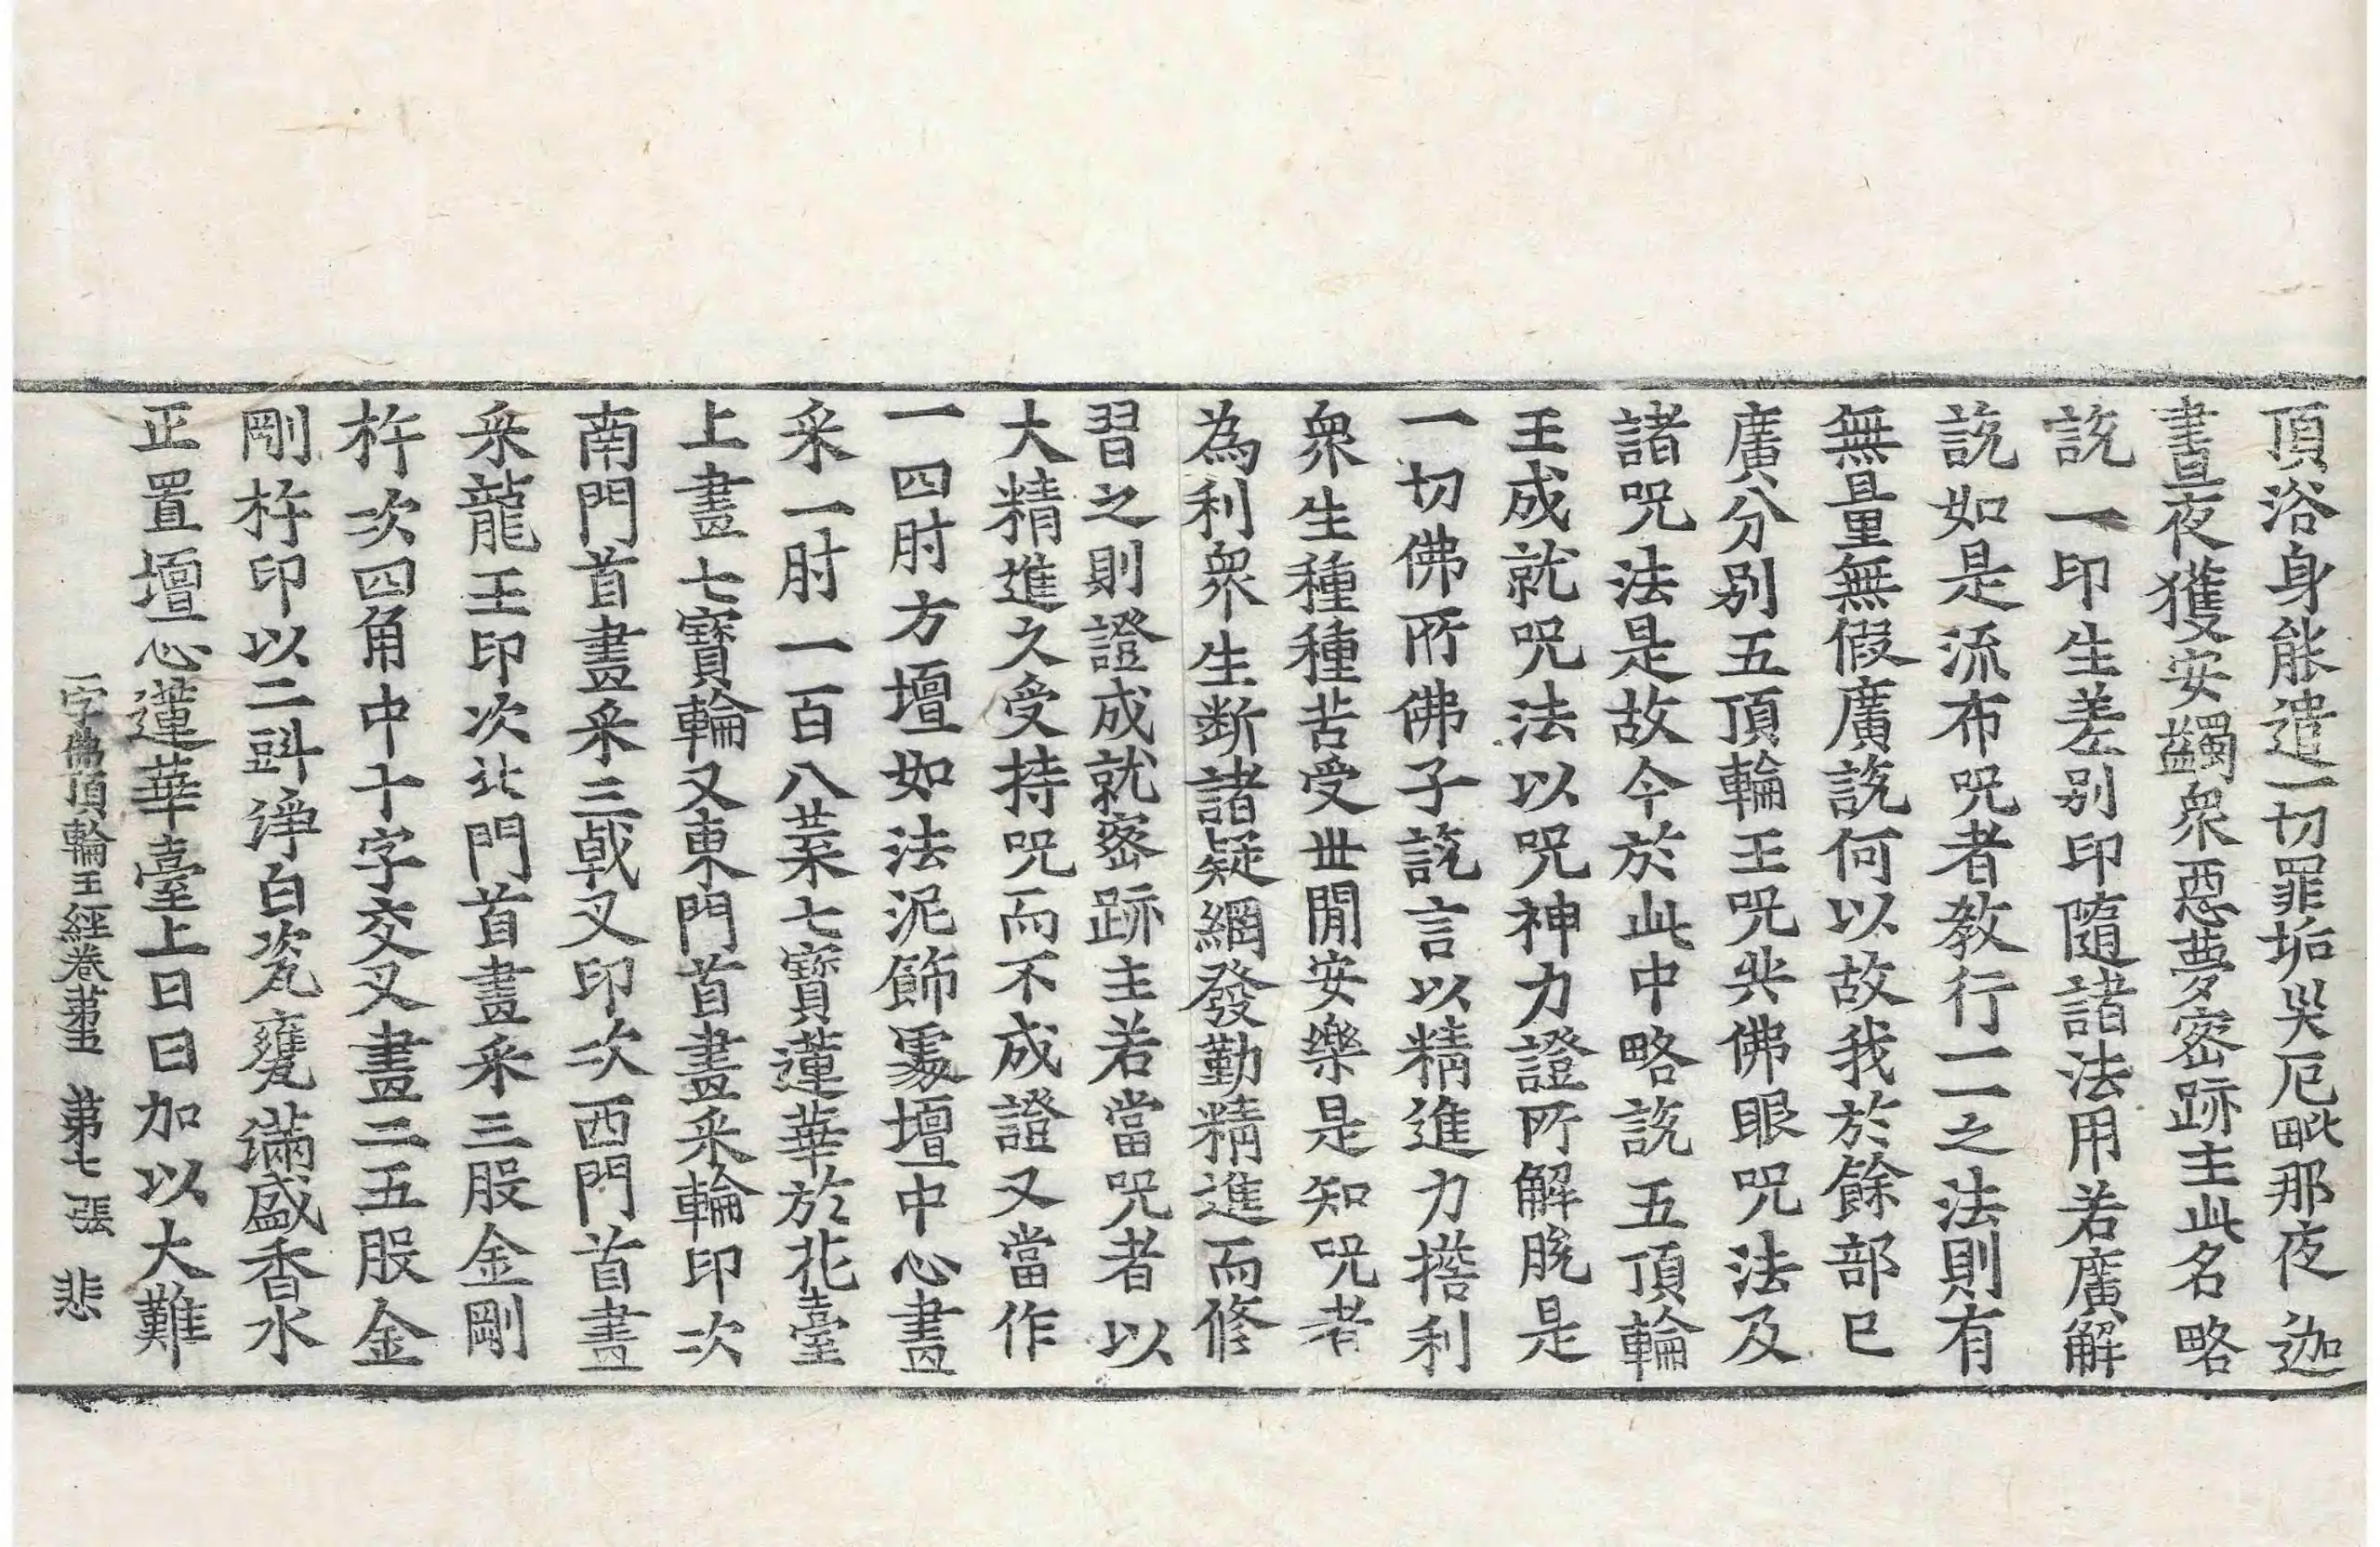 頂浴身能遣一切罪垢災厄毗那夜迦
晝夜獲安蠲衆惡夢密跡主此名略
說一印生差別印隨諸法用若廣解
說如是流布呪者教行一一之法則有
無量無假廣說何以故我於餘部已
廣分別五頂輪王呪與佛眼呪法及
諸呪法是故今於此中略說五頂輪
王成就呪法以呪神力證所解脫是
一切佛所佛子說言以精進力擔利
衆生種種苦受世閒安樂是知呪者
為利衆生斷諸疑網發勤精進而修
習之則證成就密跡主若當呪者以
大精進久受持呪而不成證又當作
一四肘方壇如法泥飾處壇中心畫
采一肘一百八葉七寶蓮華於花臺
上畫七寶輪又東門首畫采輪印次
南門首畫采三戟叉印次西門首畫
采龍王印次北門首畫采三股金剛
杵次四角中十字交叉畫二五股金
剛杵印以二㪷淨白瓷甕滿盛香水
正置壇心蓮華臺上日日加以大難
一字佛頂輪王經卷第五 第七張 悲